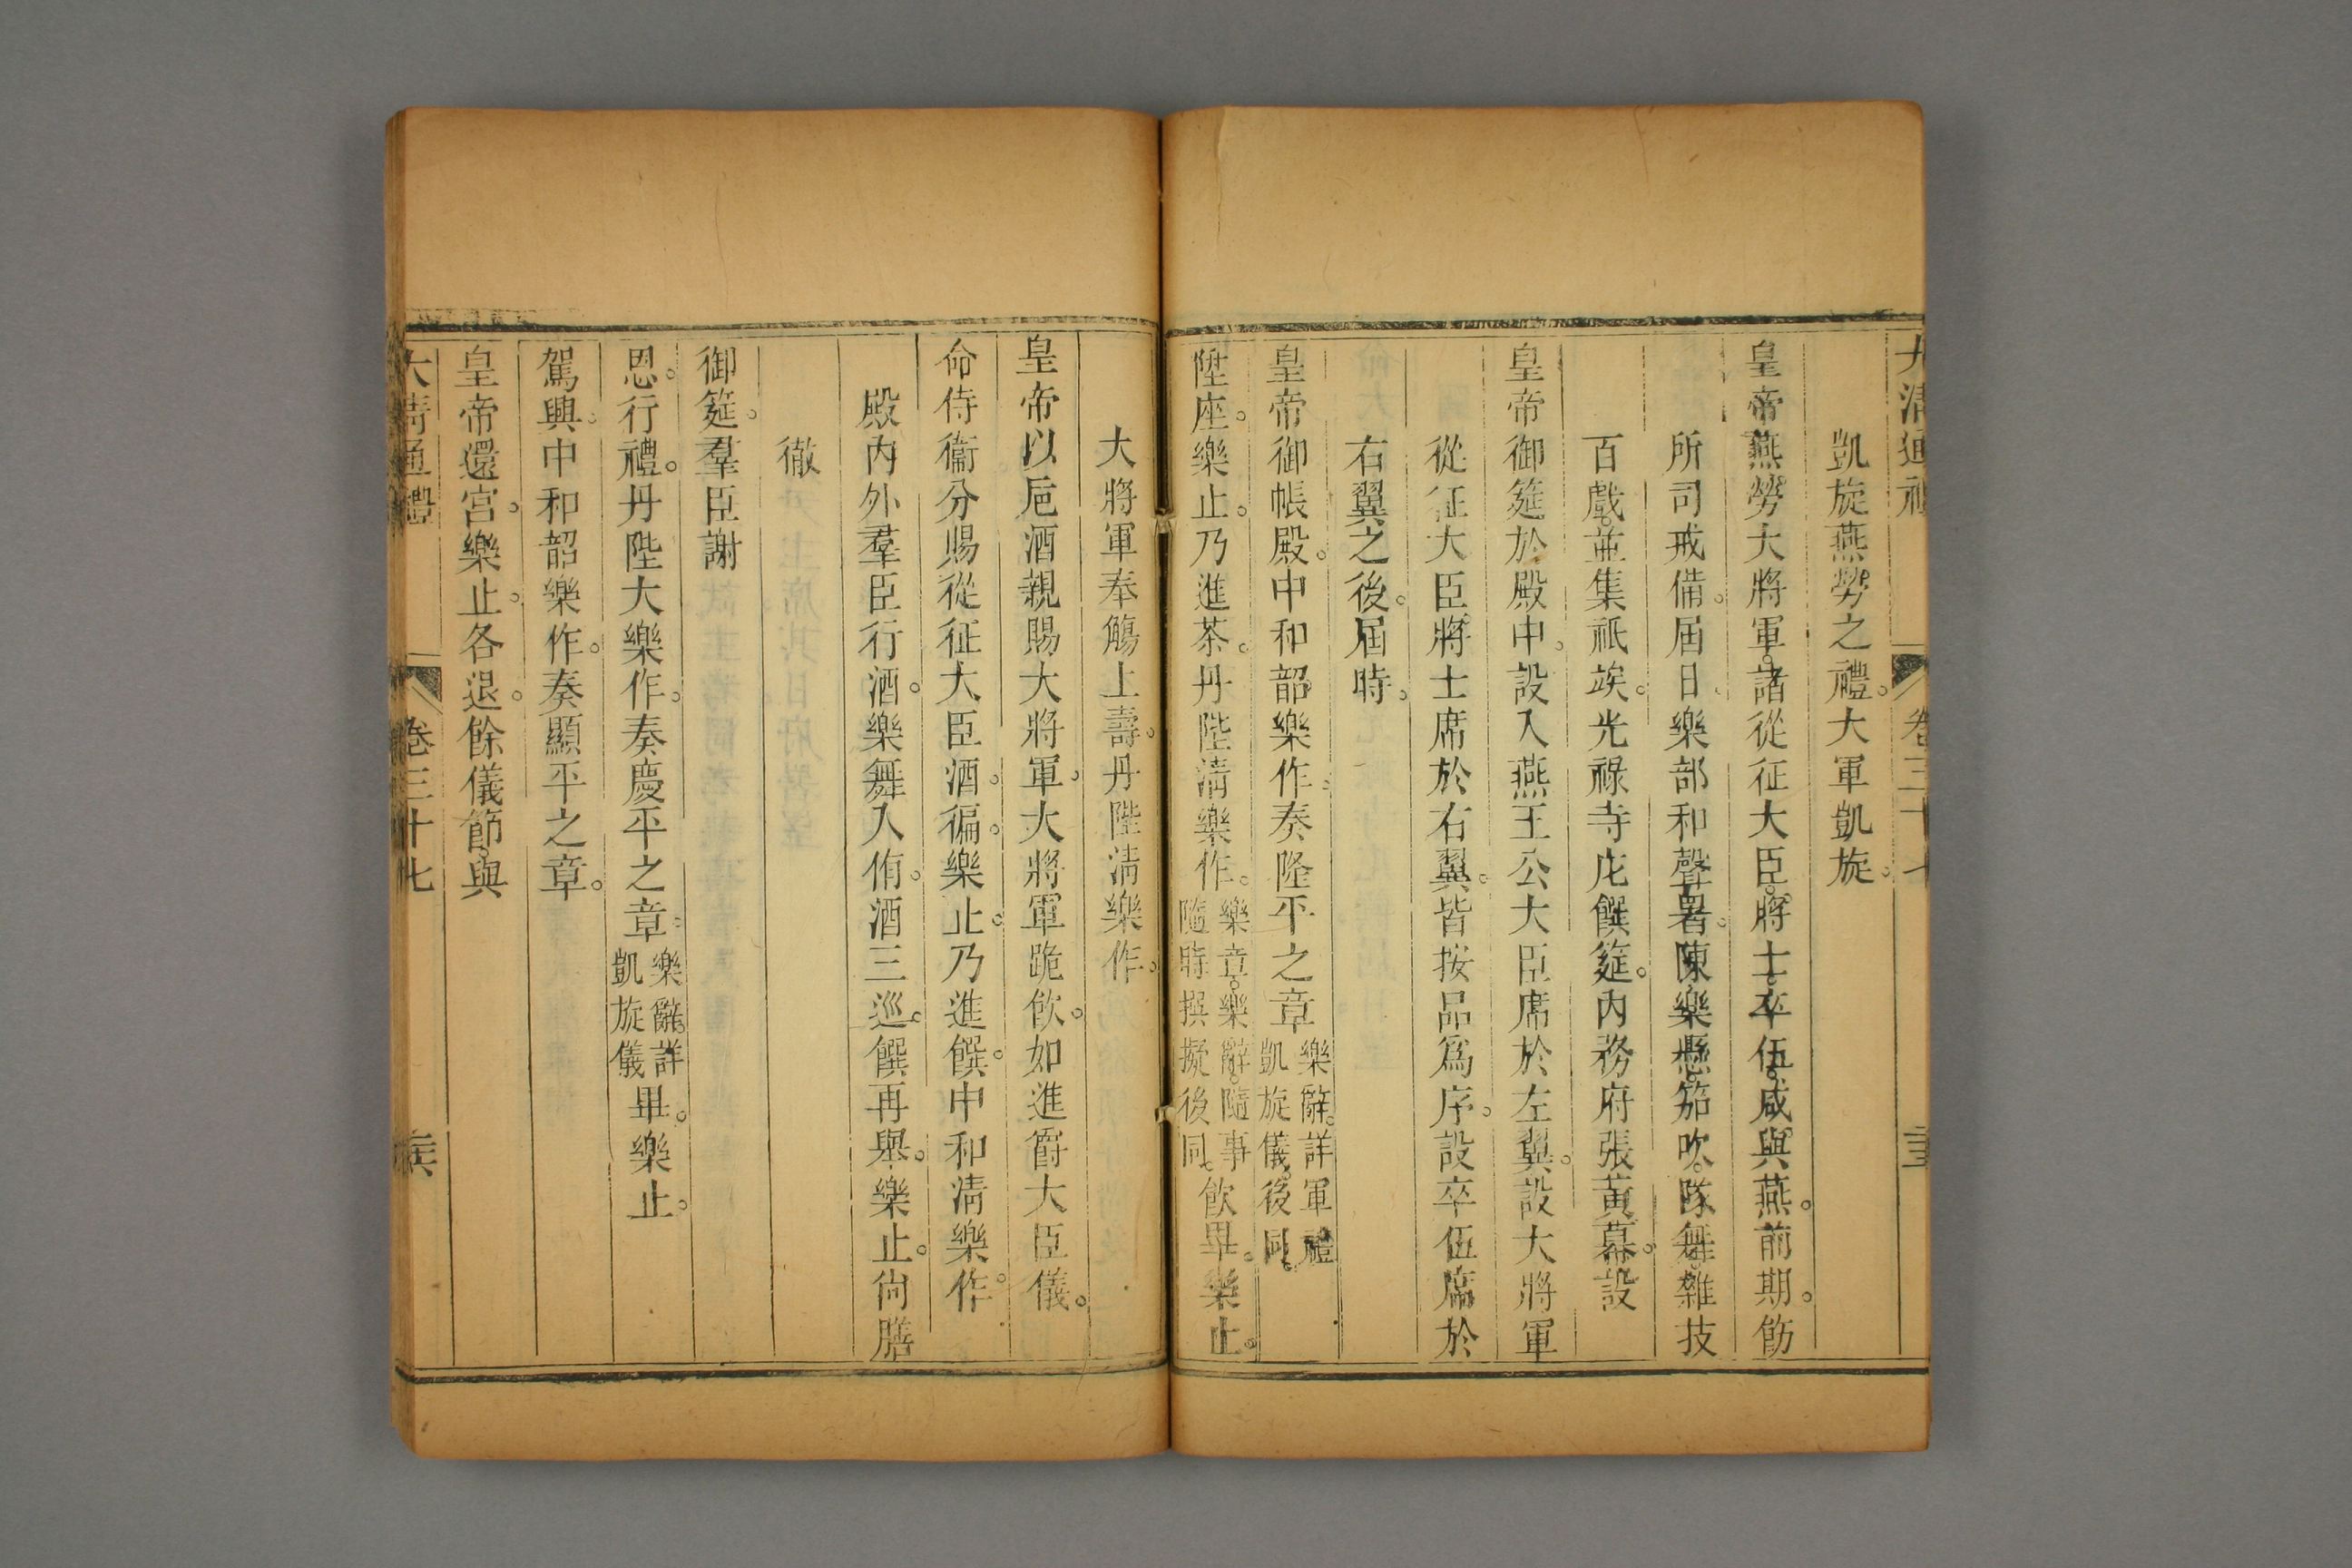 大清通禮 卷三十七
凱旋燕勞之禮。大軍凱旋。
皇帝燕勞大將軍。諸從征大臣。將士。卒伍。咸與燕。前期。飭
所司戒備。屆日。樂部和聲署。陳樂懸。笳吹。隊舞。雜技
百戲。並集祇竢。光祿寺庀饌筵。內務府張黃幕。設
皇帝御筵於殿中。設入燕王公大臣席於左翼。設大將軍
從征大臣將士席於右翼。皆按品為序。設卒伍席於
右翼之後。屆時。
皇帝御帳殿。中和韶樂作。奏隆平之章樂辭。詳軍禮凱旋儀。後同。
陞座。樂止。乃進茶。丹陛清樂作。樂章。樂辭。隨事隨時撰擬後同。飲畢。樂止。
大將軍奉觴上壽。丹陛清樂作。
皇帝以卮酒親賜大將軍。大將軍跪飲。如進爵大臣儀。
命侍衞分賜從征大臣酒。徧。樂止。乃進饌。中和清樂作。
殿內外羣臣行酒。樂舞入侑。酒三巡。饌再舉。樂止。尙膳
徹
御筵。羣臣謝
恩。行禮。丹陛大樂作。奏慶平之章。樂辭。詳凱旋儀畢。樂止。
駕興。中和韶樂作。奏顯平之章。
皇帝還宮。樂止。各退。餘儀節。與
大清通禮 卷三十七